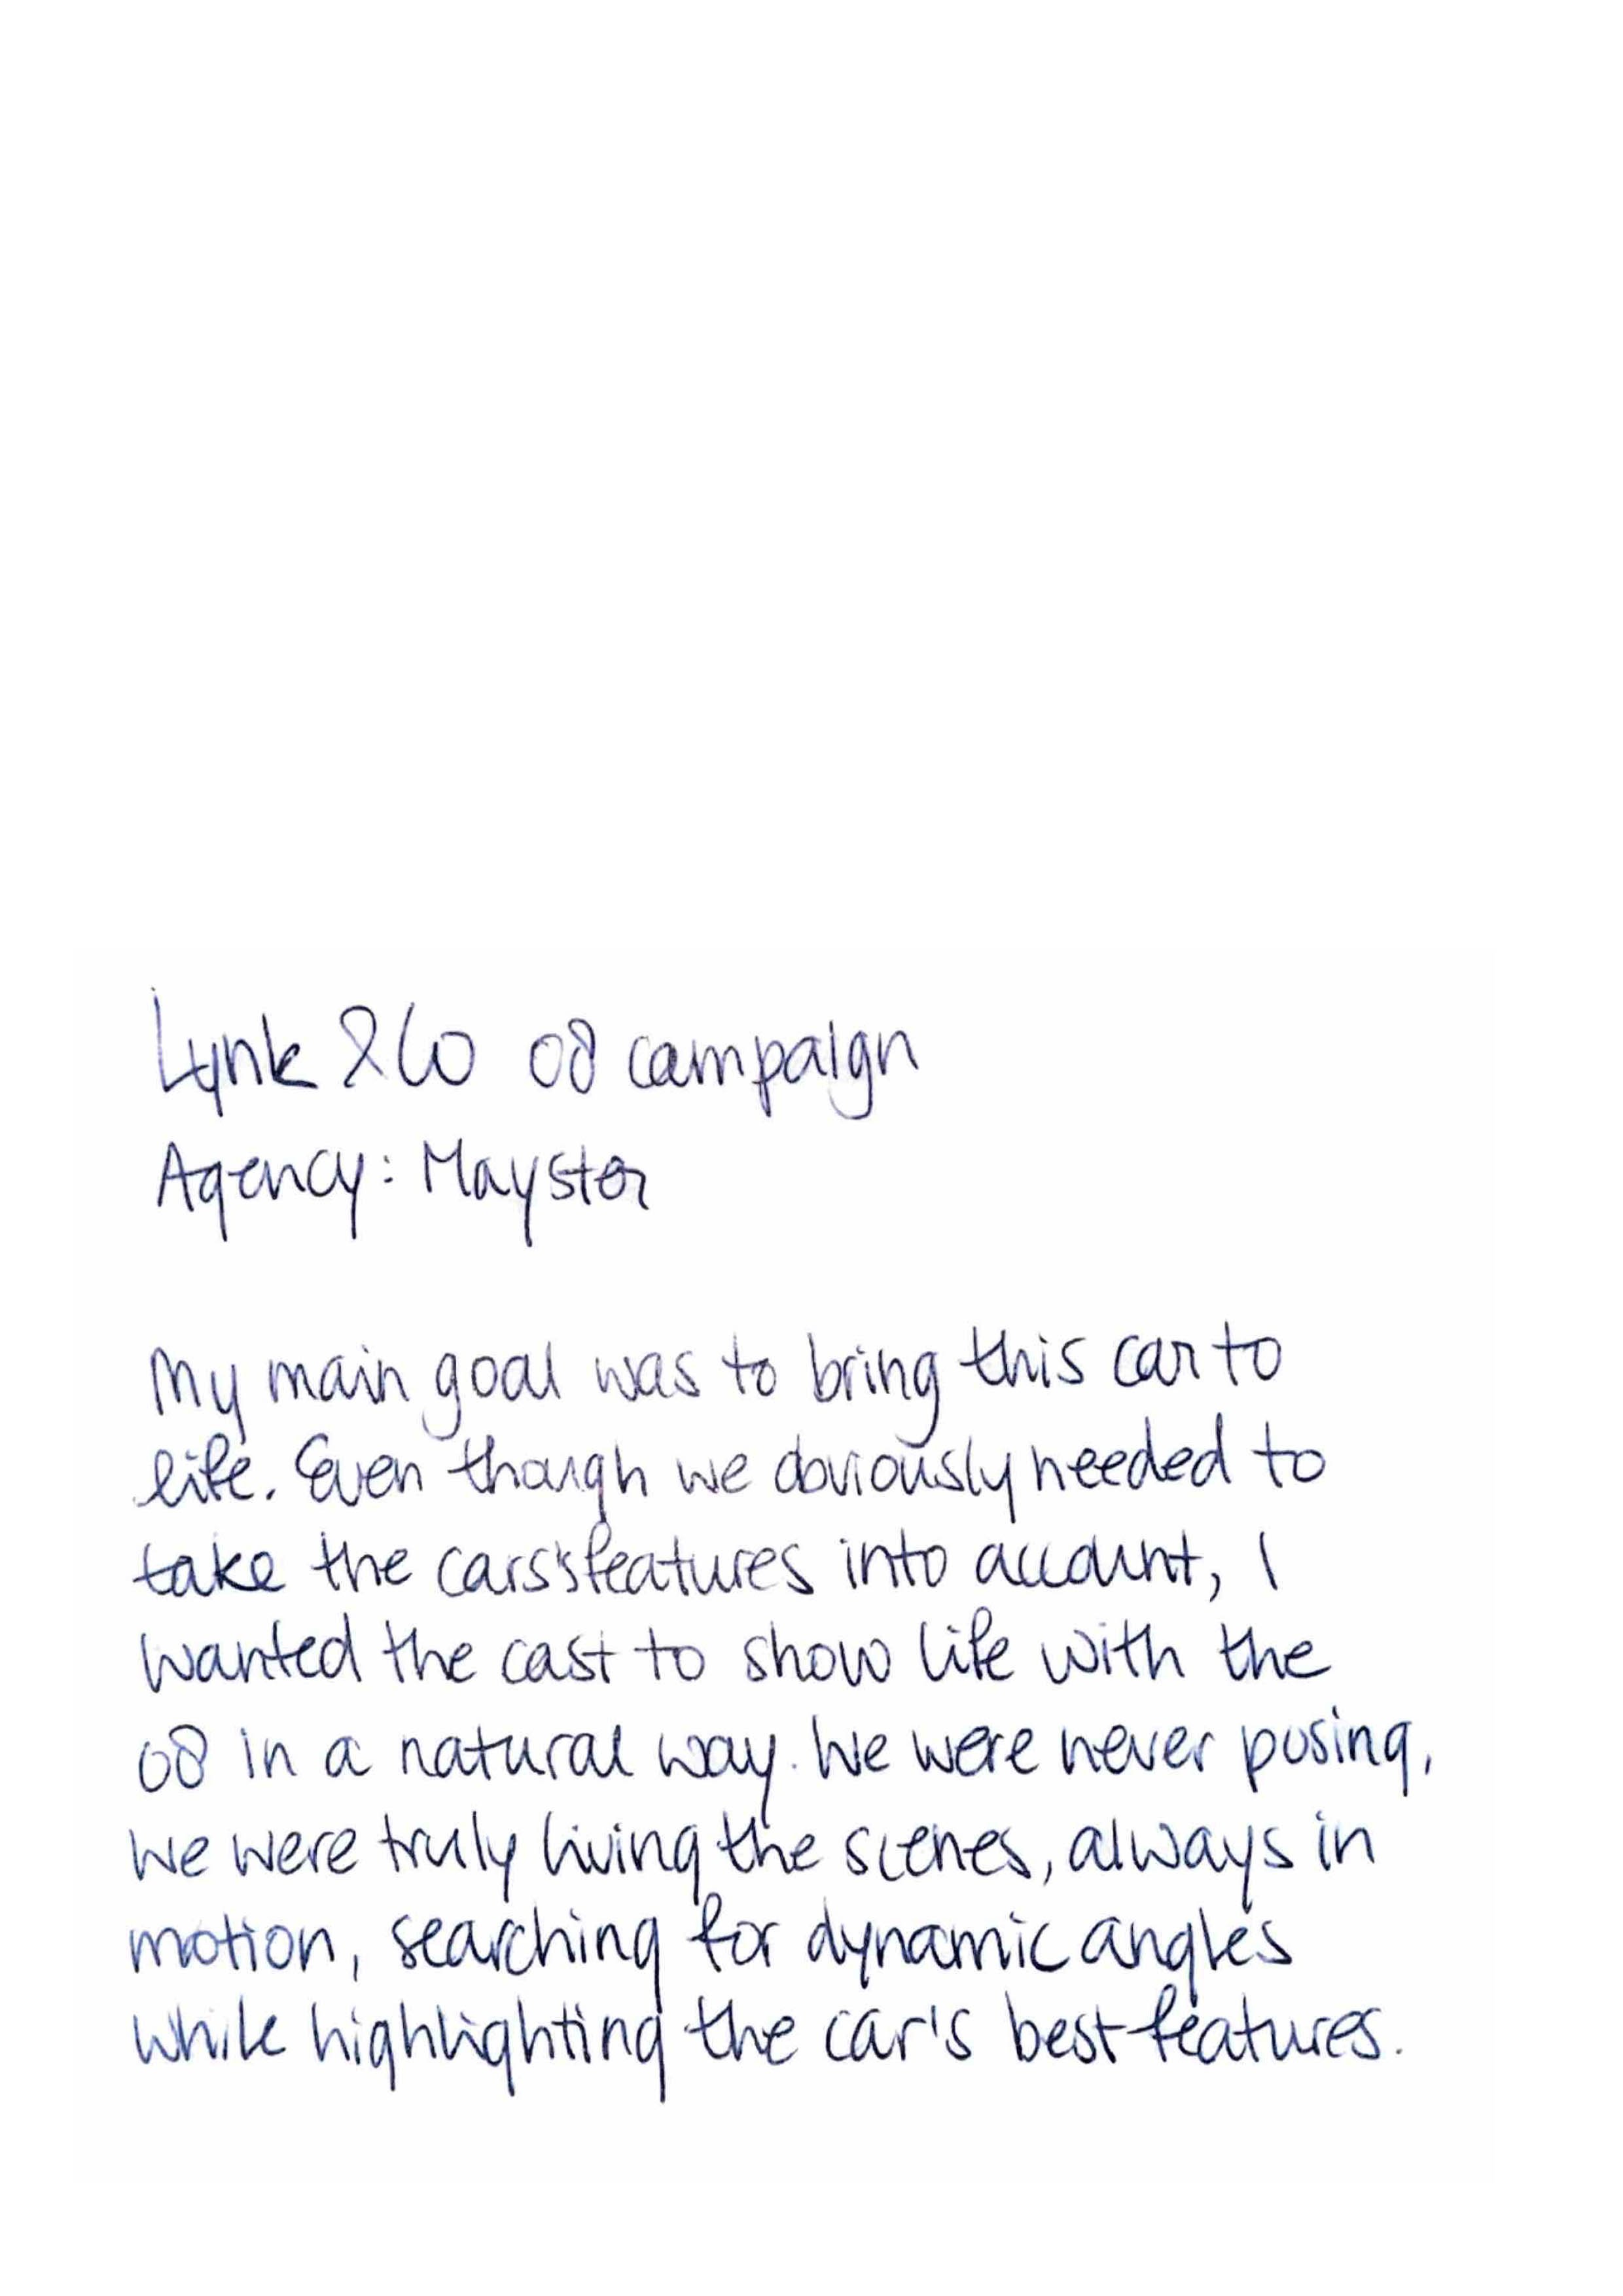 Lynk & Co 08 campaign
Agency: Mayster
My main goal was to bring this car to
life. Even though we obviously needed to
take the cars's features into account, I
wanted the cast to show life with the
08 in a natural way. We were never posing,
we were truly living the scenes, always in
motion, searching for dynamic angles
while highlighting the car's best features.